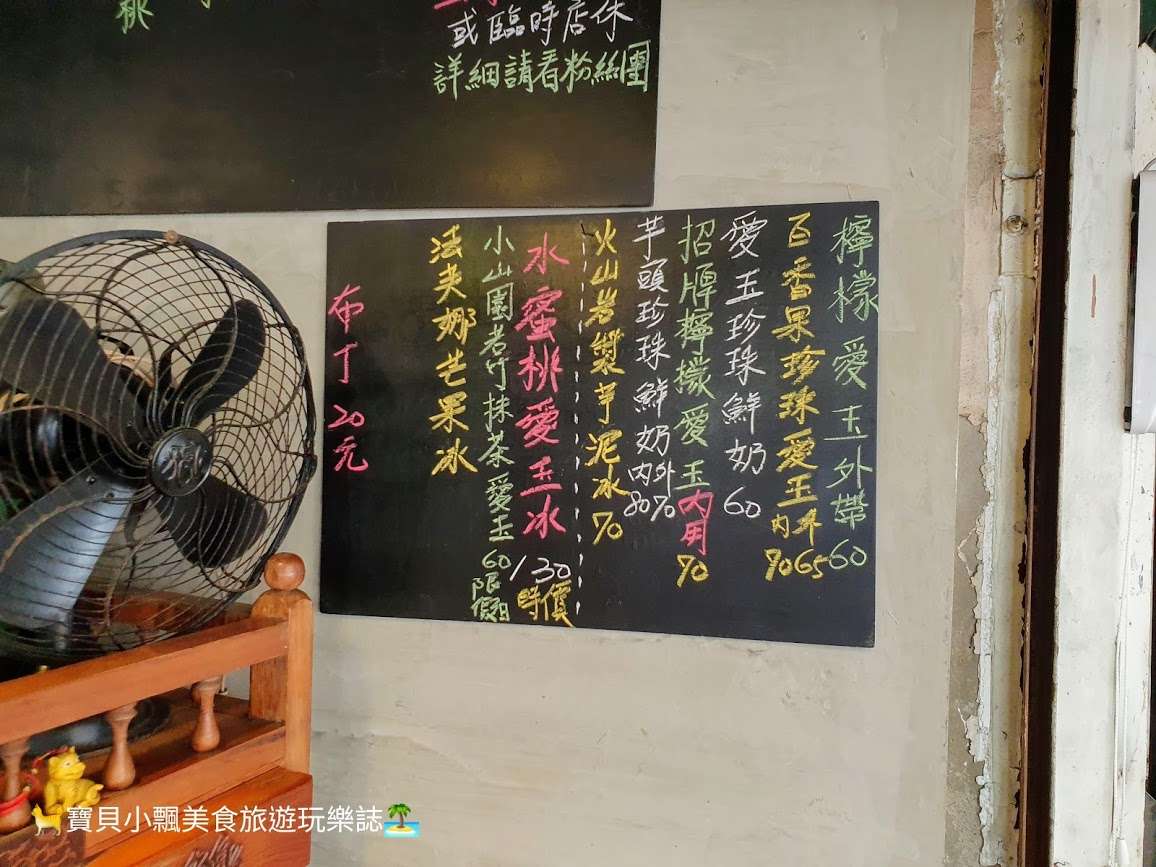 桃
或臨時店休
詳細請看粉絲團
檸檬愛玉外帶60
百香果珍珠愛玉內70外65
愛玉珍珠鮮奶60
招牌檸檬愛玉內用70
芋頭珍珠鮮奶內80外70
火山岩漿芋泥冰70
水蜜桃愛玉冰130時價
小山園若竹抹茶愛玉60限假日
法芙娜芒果冰
布丁20元
寶貝小飄美食旅遊玩樂誌